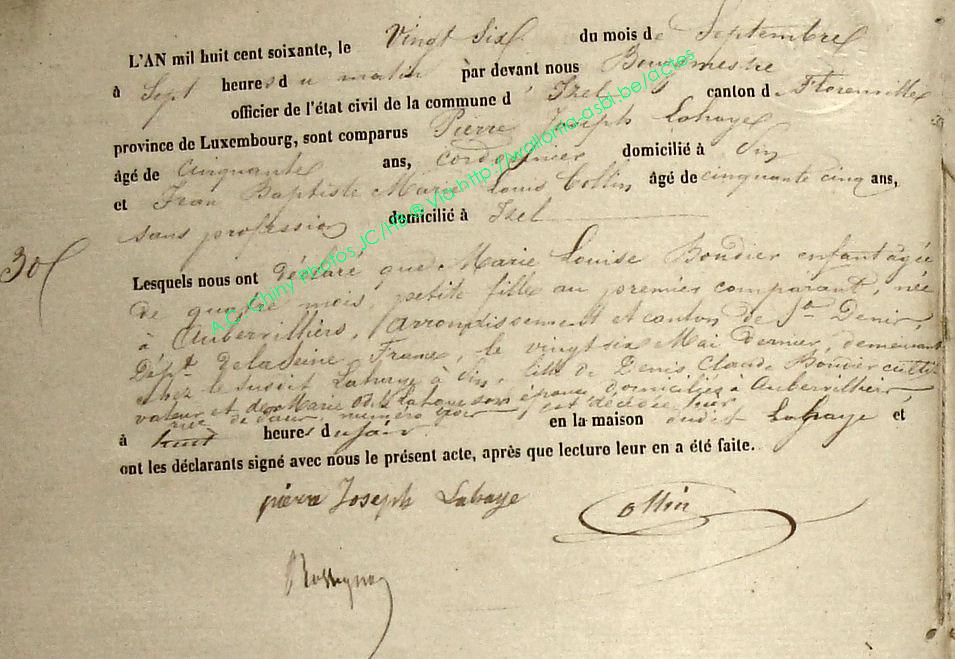 L'AN mil huit cent soixante, le Vingt six du mois de Septembre
à Sept heures du matin par devant nous Bourgmestre
officier de l'état civil de la commune d'Izel canton d Florenville
province de Luxembourg, sont comparus Pierre Joseph Lahaye
âgé de Cinquante ans, cordonnier domicilié à Pin
et Jean Baptiste Marie Louis Collin âgé de cinquante cinq ans,
sans profession domicilié à Izel
30
Lesquels nous ont déclaré que Marie Louise Bondier enfant agée
de quatre mois, petite fille au premier comparant, née
à Aubervilliers, arrondissement et canton de St. Denis,
Dépt. de la Seine France, le vingt six Mai dernier, demeurant
chez le susdit Lahaye à Pin, fille de Denis Claude Bondier culti
vateur et de Marie Lahaye son épouse domiciliés à Aubervilliers
rue de numéro est décédée hier
à huit heures du soir en la maison dudit Lahaye et
ont les déclarants signé avec nous le présent acte, après que lecture leur en a été faite.
pierre Joseph Lahaye Collin
Rossignon
A.C. Chiny Photos JC/HB ® Via http://wallonia-asbl.be/actes